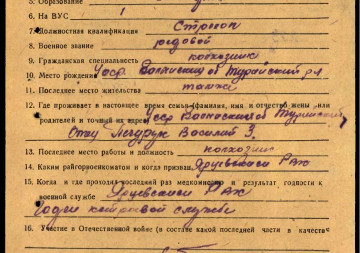 5. Образование
6. На ВУС 1
7. Должностная квалификация Стрелок
8. Военное звание рядовой
9. Гражданская специальность колхозник
10. Место рождения УССР Волынская об Турийский р-н
11. Последнее место жительства также
12. Где проживает в настоящее время семья (фамилия, имя и отчество жены или
родителей и точный их адрес) УССР Волынская об Турийский
Отец Василий З.
13. Последнее место работы и должность колхозник
14. Каким райгорвоенкоматом и когда призван РВК
15. Когда и где проходил последний раз медкомиссию и результат годности к
военной службе РВК
Годен к строевой службе
16. Участие в Отечественной войне (в составе какой последней части в качестве